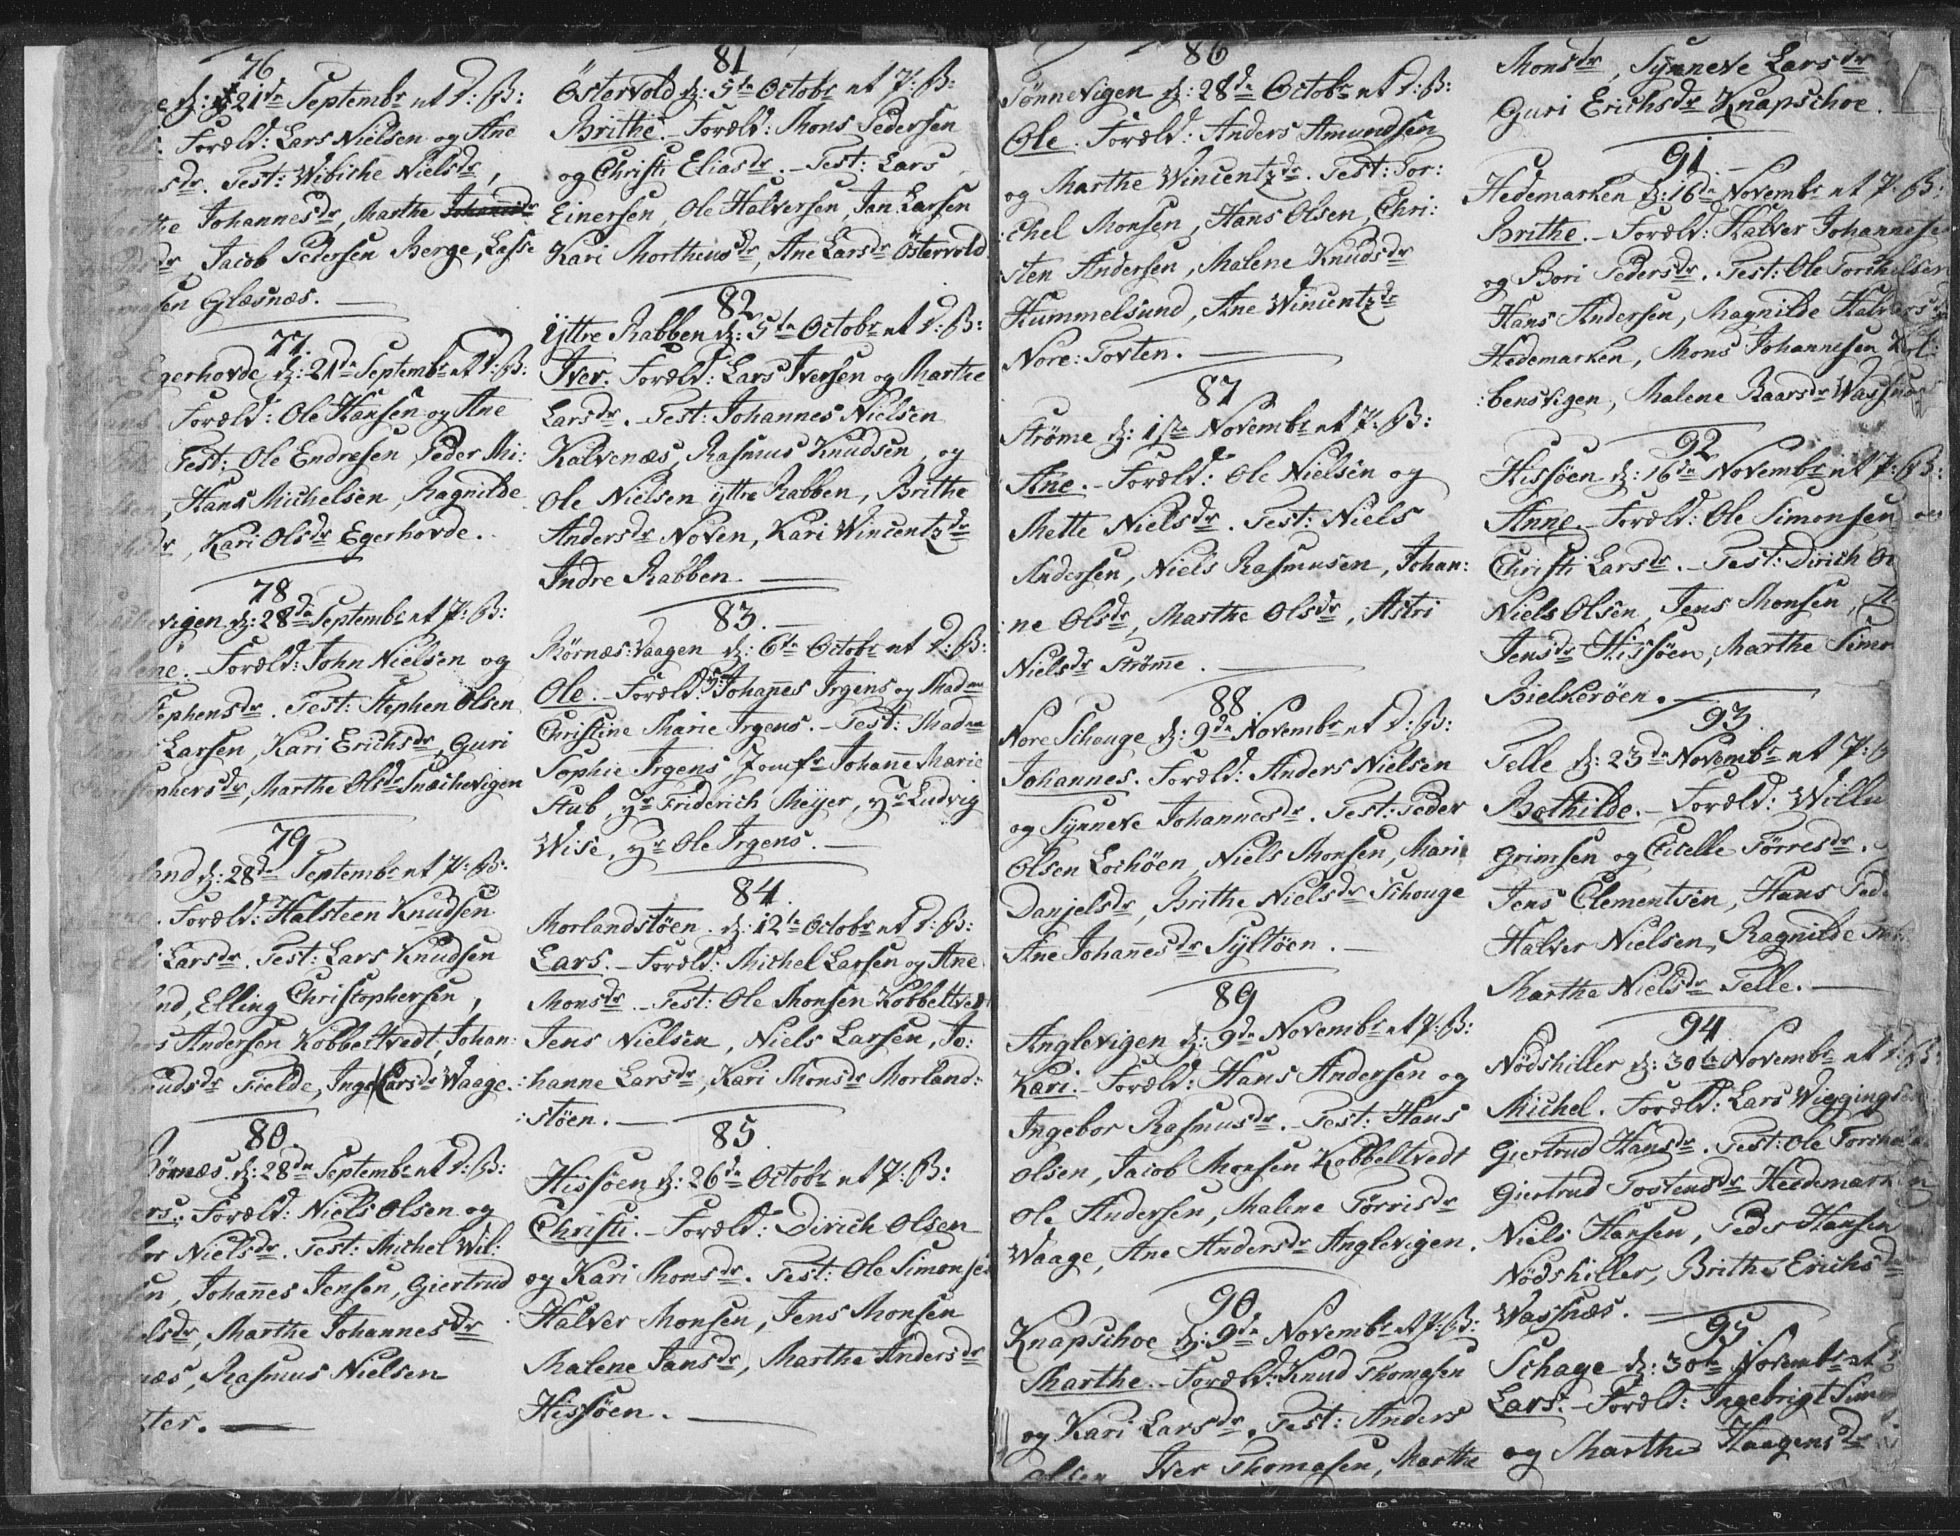 76
d: 21de Septembr nt d: B:
Foræld: Lars Nielsen og Ane
Test: Wibiche Nielsdr,
Johannesdr, Marthe Johannsdr
Jacob Pedersen Berge, Lasse
Glæsnæs.
77.
Egerhovde, d: 21de Septembr nt d: B:
Foræld: Ole Hansen og Ane
Test: Ole Endresen, Peder Mi:
, Hans Michelsen, Ragnilde
, Kari Olsdr Egerhovde.
78
vigen d: 28de Septembr nt d: B:
Foræld: John Nielsen og
Stephensdr. Test: Stephen Olsen
Larsen, Kari Erichsdr, Guri
Marthe Olsdr Snæchevigen
79
land d: 28de Septembr nt d: B:
Foræld: Halsteen Knudsen
Larsdr. Test: Lars Knudsen
Elling Christophersen,
Andersen Kobbeltvedt, Johan:
Knudsdr Fielde, Inge Larsdr Waage.
80.
Börnæs d: 28de Septembr nt d: B:
Foræld: Niels Olsen og
Nielsdr. Test: Michel Wil:
Johannes Jensen, Giertrud
Marthe Johannesdr
Rasmus Nielsen
81
Östervold d: 5te Octobr nt d: B:
Brithe. Foræld: Mons Pedersen
og Christi Eliasdr. Test: Lars
Einersen, Ole Halversen, Jan Larsen
Kari Morthensdr, Ane Larsdr Östervold
82
ÿttre Rabben d: 5te Octobr nt d: B:
Iver. Foræld: Lars Iversen og Marthe
Larsdr. Test: Johannes Nielsen
Kalvenæs, Rasmus Knudsen, og
Ole Nielsen ÿttre Rabben, Brithe
Andersdr Noven, Kari Wincentzdr
Indre Rabben.
83.
Börnæs:vaagen d: 6te Octobr nt d: B:
Ole. Foræld: Johannes Irgens og Madme
Christine Marie Irgens. Test: Madme
Sophie Irgens, Jomfr Johane Marie
Stub, Hr Friderich Meÿer, Hr Ludvig
Wise, Hr Ole Irgens.
84.
Morlandstöen. d: 12te Octobr nt d: B:
Lars. Foræld: Michel Larsen og Ane
Monsdr. Test: Ole Monsen Kobbeltve
Jens Nielsen, Niels Larsen, Jo:
:hanne Larsdr, Kari Monsdr Morland:
:stöen.
85.
Hissöen d: 26de Octobr nt d: B:
Christi. Foræld: Dirich Olsen
og Kari Monsdr. Test: Ole Simonsen
Halver Monsen, Jens Monsen
Malene Jansdr, Marthe Andersdr
Hissöen.
86
Tönnevigen d: 28de Octobr nt d: B:
Ole. Foræld: Anders Amundsen
og Marthe Wincentzdr. Test: Tor:
:chel Monsen, Hans Olsen, Chri:
sten Andersen, Malene Knudsdr
Hummelsund, Ane Wincentzdr
Nore: Tovten.
87
Ströme d: 1ste Novembr nt d: B:
Ane. Foræld: Ole Nielsen og
Mette Nielsdr. Test: Niels
Andersen, Niels Rasmusen, Johan:
:ne Olsdr, Marthe Olsdr, Astri
Nielsdr Ströme.
88
Nore Schouge d: 9de Novembr nt d: B:
Johannes. Foræld: Anders Nielsen
og Sÿnneve Johannesdr. Test: Peder
Olsen Lochöen, Niels Monsen, Mari
Danjelsdr, Brithe Nielsdr Schouge
Ane Johannesdr Sÿltöen.
89
Anglevigen d: 9de Novembr nt d: B:
Kari. Foræld: Hans Andersen og
Ingebor Rasmusdr. Test: Hans
Olsen, Jacob Monsen Kobbeltvedt
Ole Andersen, Malene Törrisdr
Waage, Ane Andersdr Anglevigen.
90.
Knapschoe d: 9de Novembr nt d: B:
Marthe. Foræld: Knud Thomasen
og Kari Larsdr. Test: Anders
Olsen Iver Thomasen, Marthe
Monsdr, Sÿnneve Larsdr
Guri Erichsdr Knapschoe.
91
Hedemarken d: 16de Novembr nt d: B:
Brithe. Foræld: Halver Johannesen
og Bori Pedersdr. Test: Ole Torchelsen
Hans Andersen, Magnilde Halversdr
Hedemarken, Mons Johannesen Kol:
:bensvigen, Malene Baarsdr Wassnæs
92
Hissöen d: 16de Novembr nt d: B:
Anne. Foræld: Ole Simonsen og
Christi Larsdr. Test: Dirich Ol
Niels Olsen, Jens Monsen,
Jensdr Hissöen, Marthe Simo
Bielkeröen.
93.
Telle d: 23de Novembr nt d: B
Bothilde. Foræld: Willu
Grimsen og Citelle Törresdr.
Jens Clementsen, Hans Ped
Halver Nielsen, Ragnilde
Marthe Nielsdr Telle.
94
Nödshiller d: 30te Novembr nt d: B:
Michel. Foræld: Lars Wiggingsen
Giertrud Hansdr. Test: Ole Torchels
Giertrud Tostensdr Heedemarken
Niels Hansen, Peder Hansen
Nödshiller, Brithe Erichsdr
Wassnæs.
95.
Schage d: 30te Novembr nt
Lars. Foræld: Ingebrigt Simo
og Marthe Haagensdr